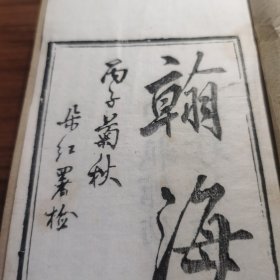 翰海
丙子菊秋
朵红署检